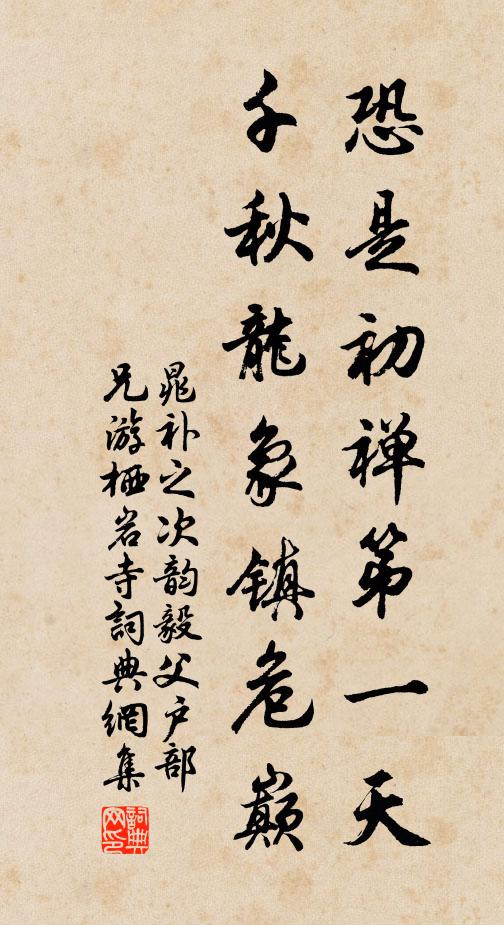 恐是初禅第一天
千秋龍象鎮危巔
晁补之次韵毅父户部
兄游栖岩寺詞典網集
詞典网印